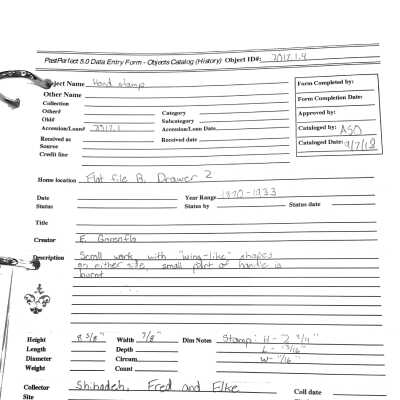 PastPerfect 5.0 Data Entry Form - Objects Catalog (History) Object ID#: 2017.1.9
Object Name Hand stamp
Other Name
Collection
Other#
Old#
Accession/Loan# 2017.1
Received as
Source
Credit line
Category
Subcategory
Accession/Loan Date
Received date
Form Completed by:
Form Completion Date:
Approved by:
Cataloged by: ASO
Cataloged Date: 9/7/18
Home location Flat file B, Drawer 2
Date Year Range 1890-1933
Status Status by Status date
Title
Creator E. Gorenflo
Description Scroll work with "wing-like" shapes
on either side, small part of handle is
burnt
Height 8 3/8" Width 7/8" Dim Notes Stamp: H- 2 3/4"
Length Depth L-
Diameter Circum W-
Weight Count
Collector Shihadeh, Fred and Elke
Coll date
Site